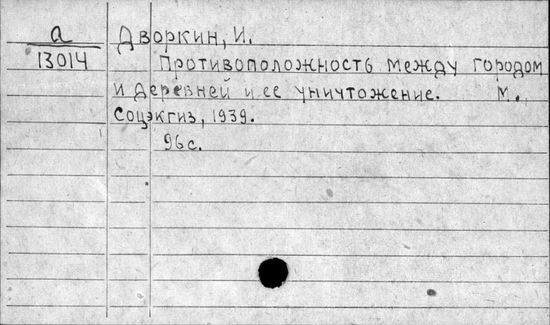 а
13014
Дворкин, И.
Противоположность между городом
и деревней и ее уничтожение. М.,
Соцэкгиз, 1939.
96с.